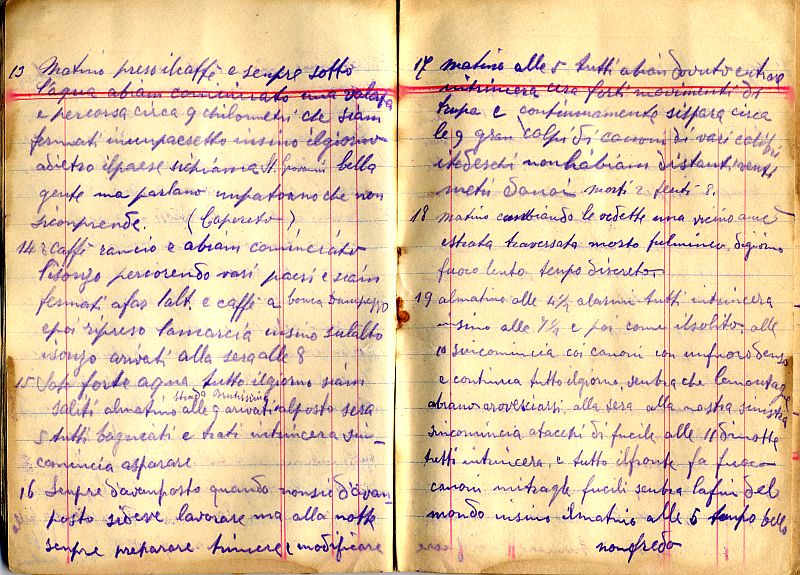 13 Matino preso il caffè e senpre sotto
l'aqua abiam cominciato una valata
e percorsa circa 9 chilometri che siam
fermati inunpaesetto insino ilgiorno
adietro ilpaese sichiama St. Giovani bella
gente ma parlano unpatoano che non
siconprende. (Caporeto)
14 caffè rancio e abiam cominciato
l'isonzo percorendo vari paesi e siam
fermati afar lalt. e caffè a
epoi ripreso lamarcia insino sulalto
isonzo arivati alla sera alle 8
15 forte aqua tutto ilgiorno siam
strada brutissima
saliti almatino alle 9 arivati alposto sera
5 tutti bagneati e trati intrincera sin-
comincia asparare
16 Senpre davenposto quando nonsié davan-
posto sideve lavorare ma alla notte
senpre preparare trincere e modificare
17 matino alle 5 tutti abiam dovuto entrare
intrincera cera forti movimenti di
trupa e continuamente sispara circa
le 9 gran colpi di canoni di vari calibri
itedeschi nonhabiam distanti venti
metri danoi morti 2 feriti 8.
18 matino canbiando le vedette una vicino ame
estata traversata morto fulmineo. digiorno
fuoco lento tenpo discreto
19 almatino alle 4½ alarmi tutti intrincera
insino alle 7½ e poi come ilsolito alle
10 sirincomincia coi canoni con unfuoco denso
e continua tutto ilgiorno, senbra che lemontagne
abiano arovesciarsi, alla sera alla nostra sinistra
sincomincia atacchi di fucile alle 11 dinotte
tutti intrincera, e tutto ilfronte fa fuoco
canoni mitraglie fucili senbra lafin del
mondo insino ilmatino alle 5 tenpo bello
nonfredo